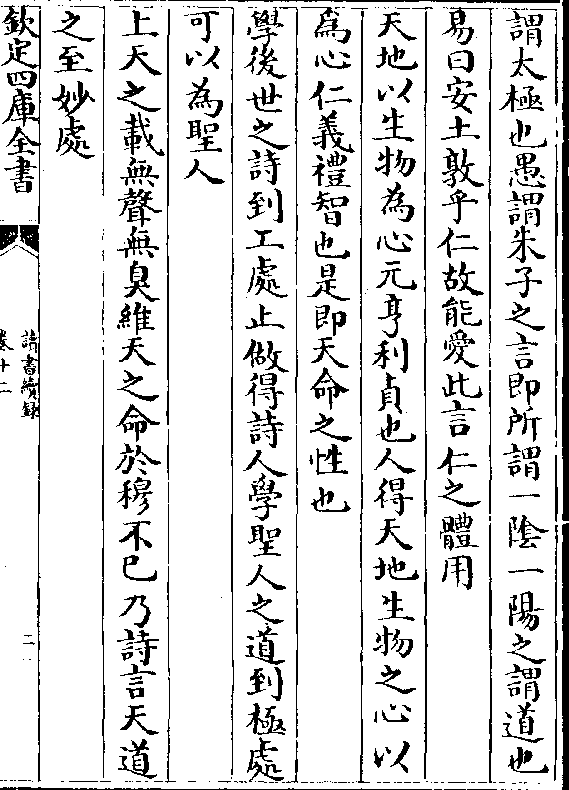 謂太極也愚謂朱子之言即所謂一隂一陽之謂道也
易曰安土敦乎仁故能愛此言仁之體用
天地以生物為心元亨利貞也人得天地生物之心以
為心仁義禮智也是即天命之性也
學後世之詩到工處止做得詩人學聖人之道到極處
可以為聖人
上天之載無聲無臭維天之命於穆不已乃詩言天道
之至妙處
欽定四庫全書
讀書續錄
卷十二
二